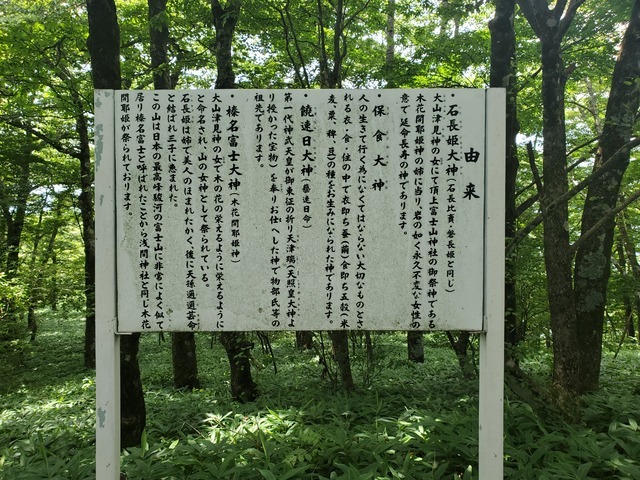 由来
・石長姫大神(石長比賣・磐長姫と同じ)
大山津見神の女にて頂上富士山神社の御祭神である
木花開耶姫神の姉に当り、岩の如く永久不変な女性の
意で延命長寿の神であります。
・保食大神
人の生きて行く為になくてはならない大切なものとさ
れる衣・食・住の中で衣即ち蚕(繭)食即ち五穀(米
麦、粟、稗、豆)の種をお生みになられた神であります。
・饒速日大神(饒速日命)
第一代神武天皇が御東征の折り天津瑞(天照皇大神よ
り授かった宝物)を奉りお仕へした神で物部氏等の
祖先であります。
・榛名富士大神(木花開耶姫神)
大山津見神の女で木の花の栄えるように栄えるように
と命名され、山の女神として祭られている。
石長姫は姉で美人のほまれたかく、後に天孫邇邇芸命
と結ばれ三子に恵まれた。
この山は日本の最高峰駿河の富士山に非常によく似て
居り榛名富士と呼ばれたことから浅間神社と同じ木花
開耶姫が祭られております。